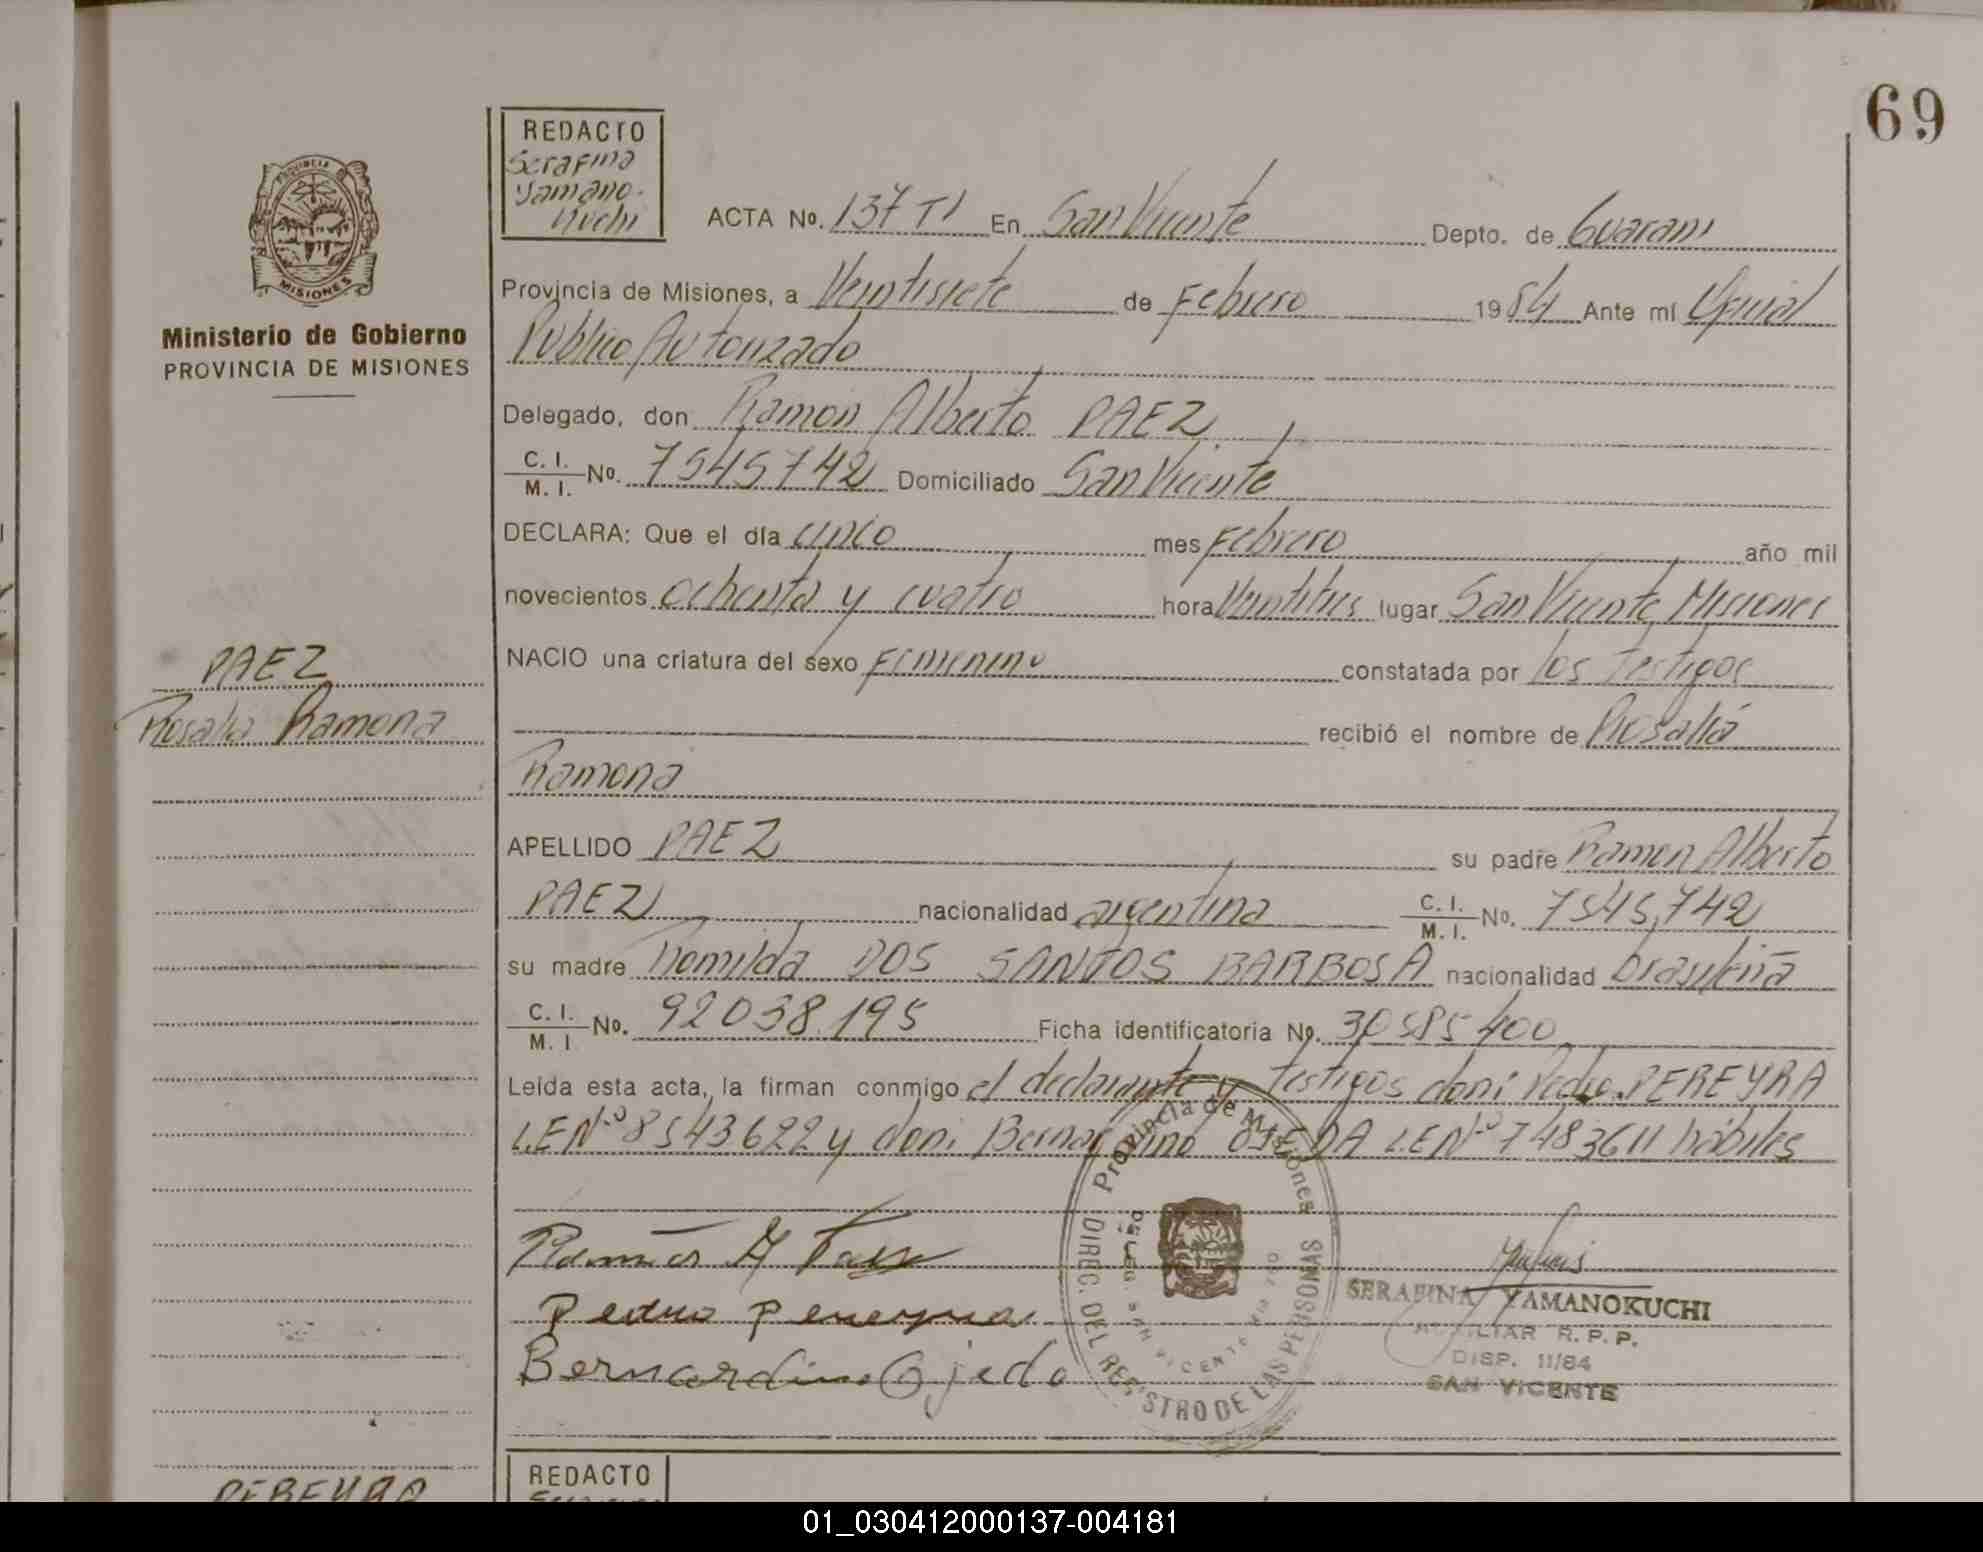 69
REDACTO
Serafina
Yamano-
kuchi
PROVINCIA
MISIONES
Ministerio de Gobierno
PROVINCIA DE MISIONES
ACTA No. 137 TI En San Vicente Depto. de Guarani
Provincia de Misiones, a Veintisiete de Febrero 1984 Ante mi Oficial
Público Autorizado
Delegado, don Ramon Alberto PAEZ
C. I. M. I. No. 7545742 Domiciliado San Vicente
DECLARA: Que el día cinco mes Febrero año mil
novecientos ochenta y cuatro hora Veintitres lugar San Vicente Misiones
NACIO una criatura del sexo Femenino constatada por los testigos
recibió el nombre de Rosalia
Ramona
PAEZ
Rosalia Ramona
APELLIDO PAEZ su padre Ramon Alberto
PAEZ nacionalidad argentina C. I. M. I. No. 7545.742
su madre Romilda DOS SANTOS BARBOSA nacionalidad brasileña
C. I. M. I No. 92038.195 Ficha identificatoria No. 30585400
Leída esta acta, la firman conmigo el declarante y testigos don: Pedro PEREYRA
L.E Nº 8543622 y don: Bernardino OJEDA L.E Nº 7483611 hábiles
Ramón A Paez
Pedro Pereyra
Bernardino Ojeda
Provincia de Misiones
DIREC. DEL REGISTRO DE LAS PERSONAS
SAN VICENTE
SERAFINA YAMANOKUCHI
AUXILIAR R. P. P.
DISP. 11/84
SAN VICENTE
REDACTO
PEREYRA
01_030412000137-004181